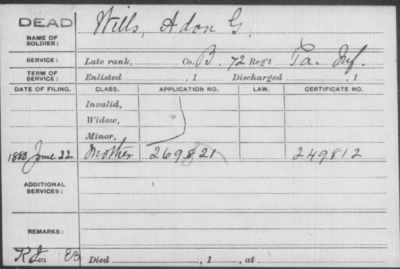 DEAD
NAME OF SOLDIER: Wills, Adon G.
SERVICE: Late rank, Co. B, 72 Reg't Pa. Inf.
TERM OF SERVICE: Enlisted , 1 Discharged , 1
DATE OF FILING. CLASS. APPLICATION NO. LAW. CERTIFICATE NO.
Invalid,
Widow,
Minor,
1880 June 22 Mother 269821 249812
ADDITIONAL SERVICES:
REMARKS:
Died , 1 , at